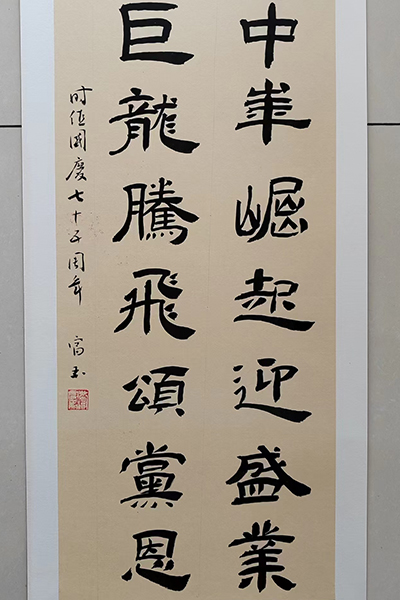 中華崛起迎盛業
巨龍騰飛頌黨恩
时值國慶七十五周年 富玉